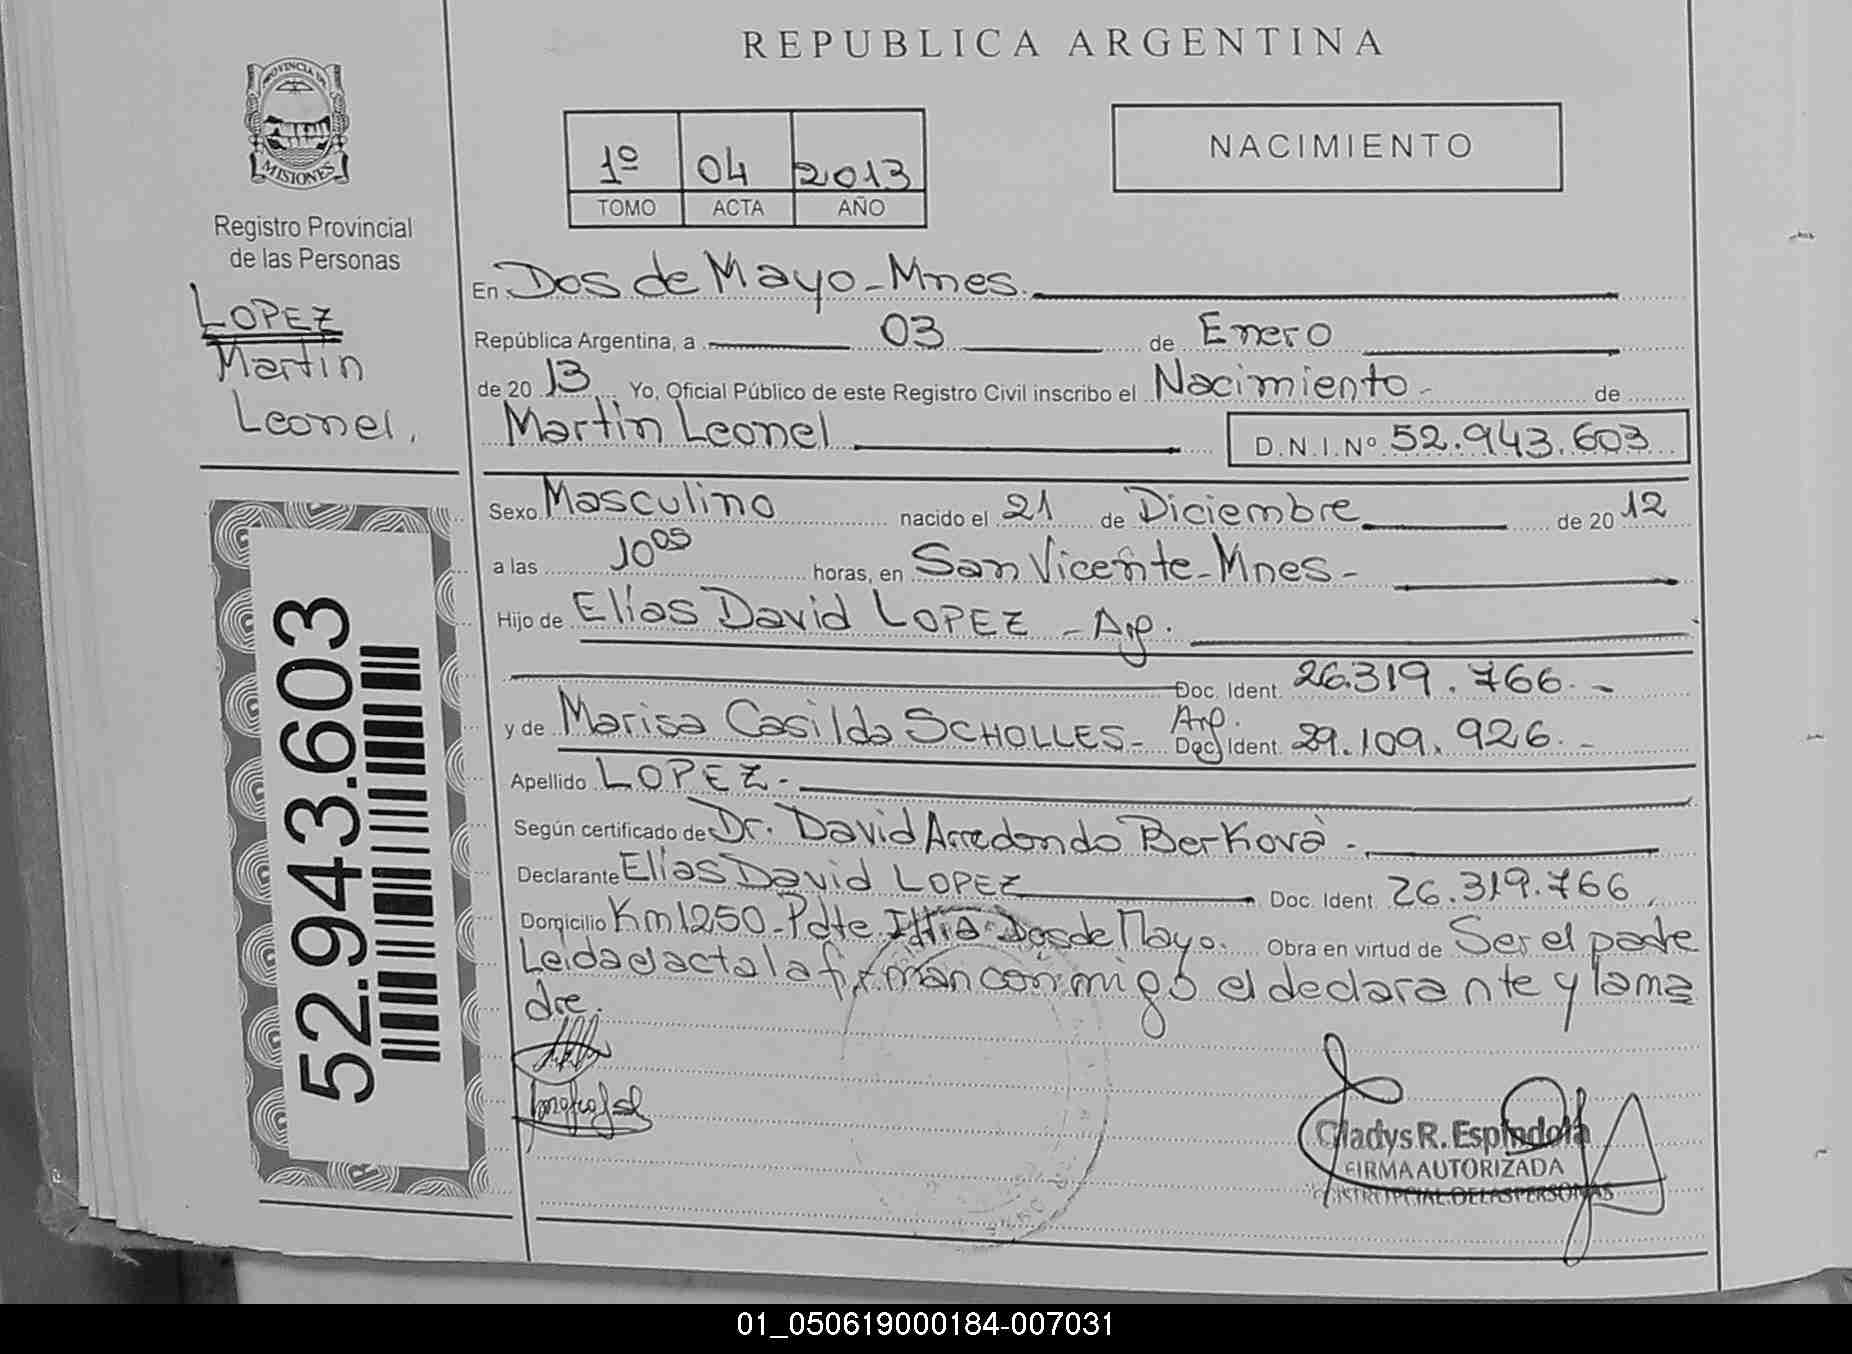 REPUBLICA ARGENTINA
PROVINCIA DE
MISIONES
Registro Provincial
de las Personas
LOPEZ
Martin
Leonel.
1º 04 2013
TOMO ACTA AÑO
NACIMIENTO
En Dos de Mayo-Mnes.
República Argentina, a 03 de Enero
de 20 13 Yo, Oficial Público de este Registro Civil inscribo el Nacimiento- de
Martin Leonel D.N.I.Nº 52.943.603
Sexo Masculino nacido el 21 de Diciembre de 20 12
a las 10 05 horas, en San Vicente-Mnes-
Hijo de Elías David LOPEZ - Arg.
Doc. Ident. 26.319.766.-
y de Marisa Casilda SCHOLLES- Arg. Doc. Ident. 29.109.926.-
Apellido LOPEZ-
Según certificado de Dr. David Arredondo Berkova -
Declarante Elías David LOPEZ Doc. Ident. 26.319.766
Domicilio Km 1250-Pdte Illia Dos de Mayo. Obra en virtud de Ser el padre
Leida el acta la firman conmigo el declarante y la ma
dre.
52.943.603
Gladys R. Espindola
FIRMA AUTORIZADA
REGISTRO PCIAL. DE LAS PERSONAS
01_050619000184-007031